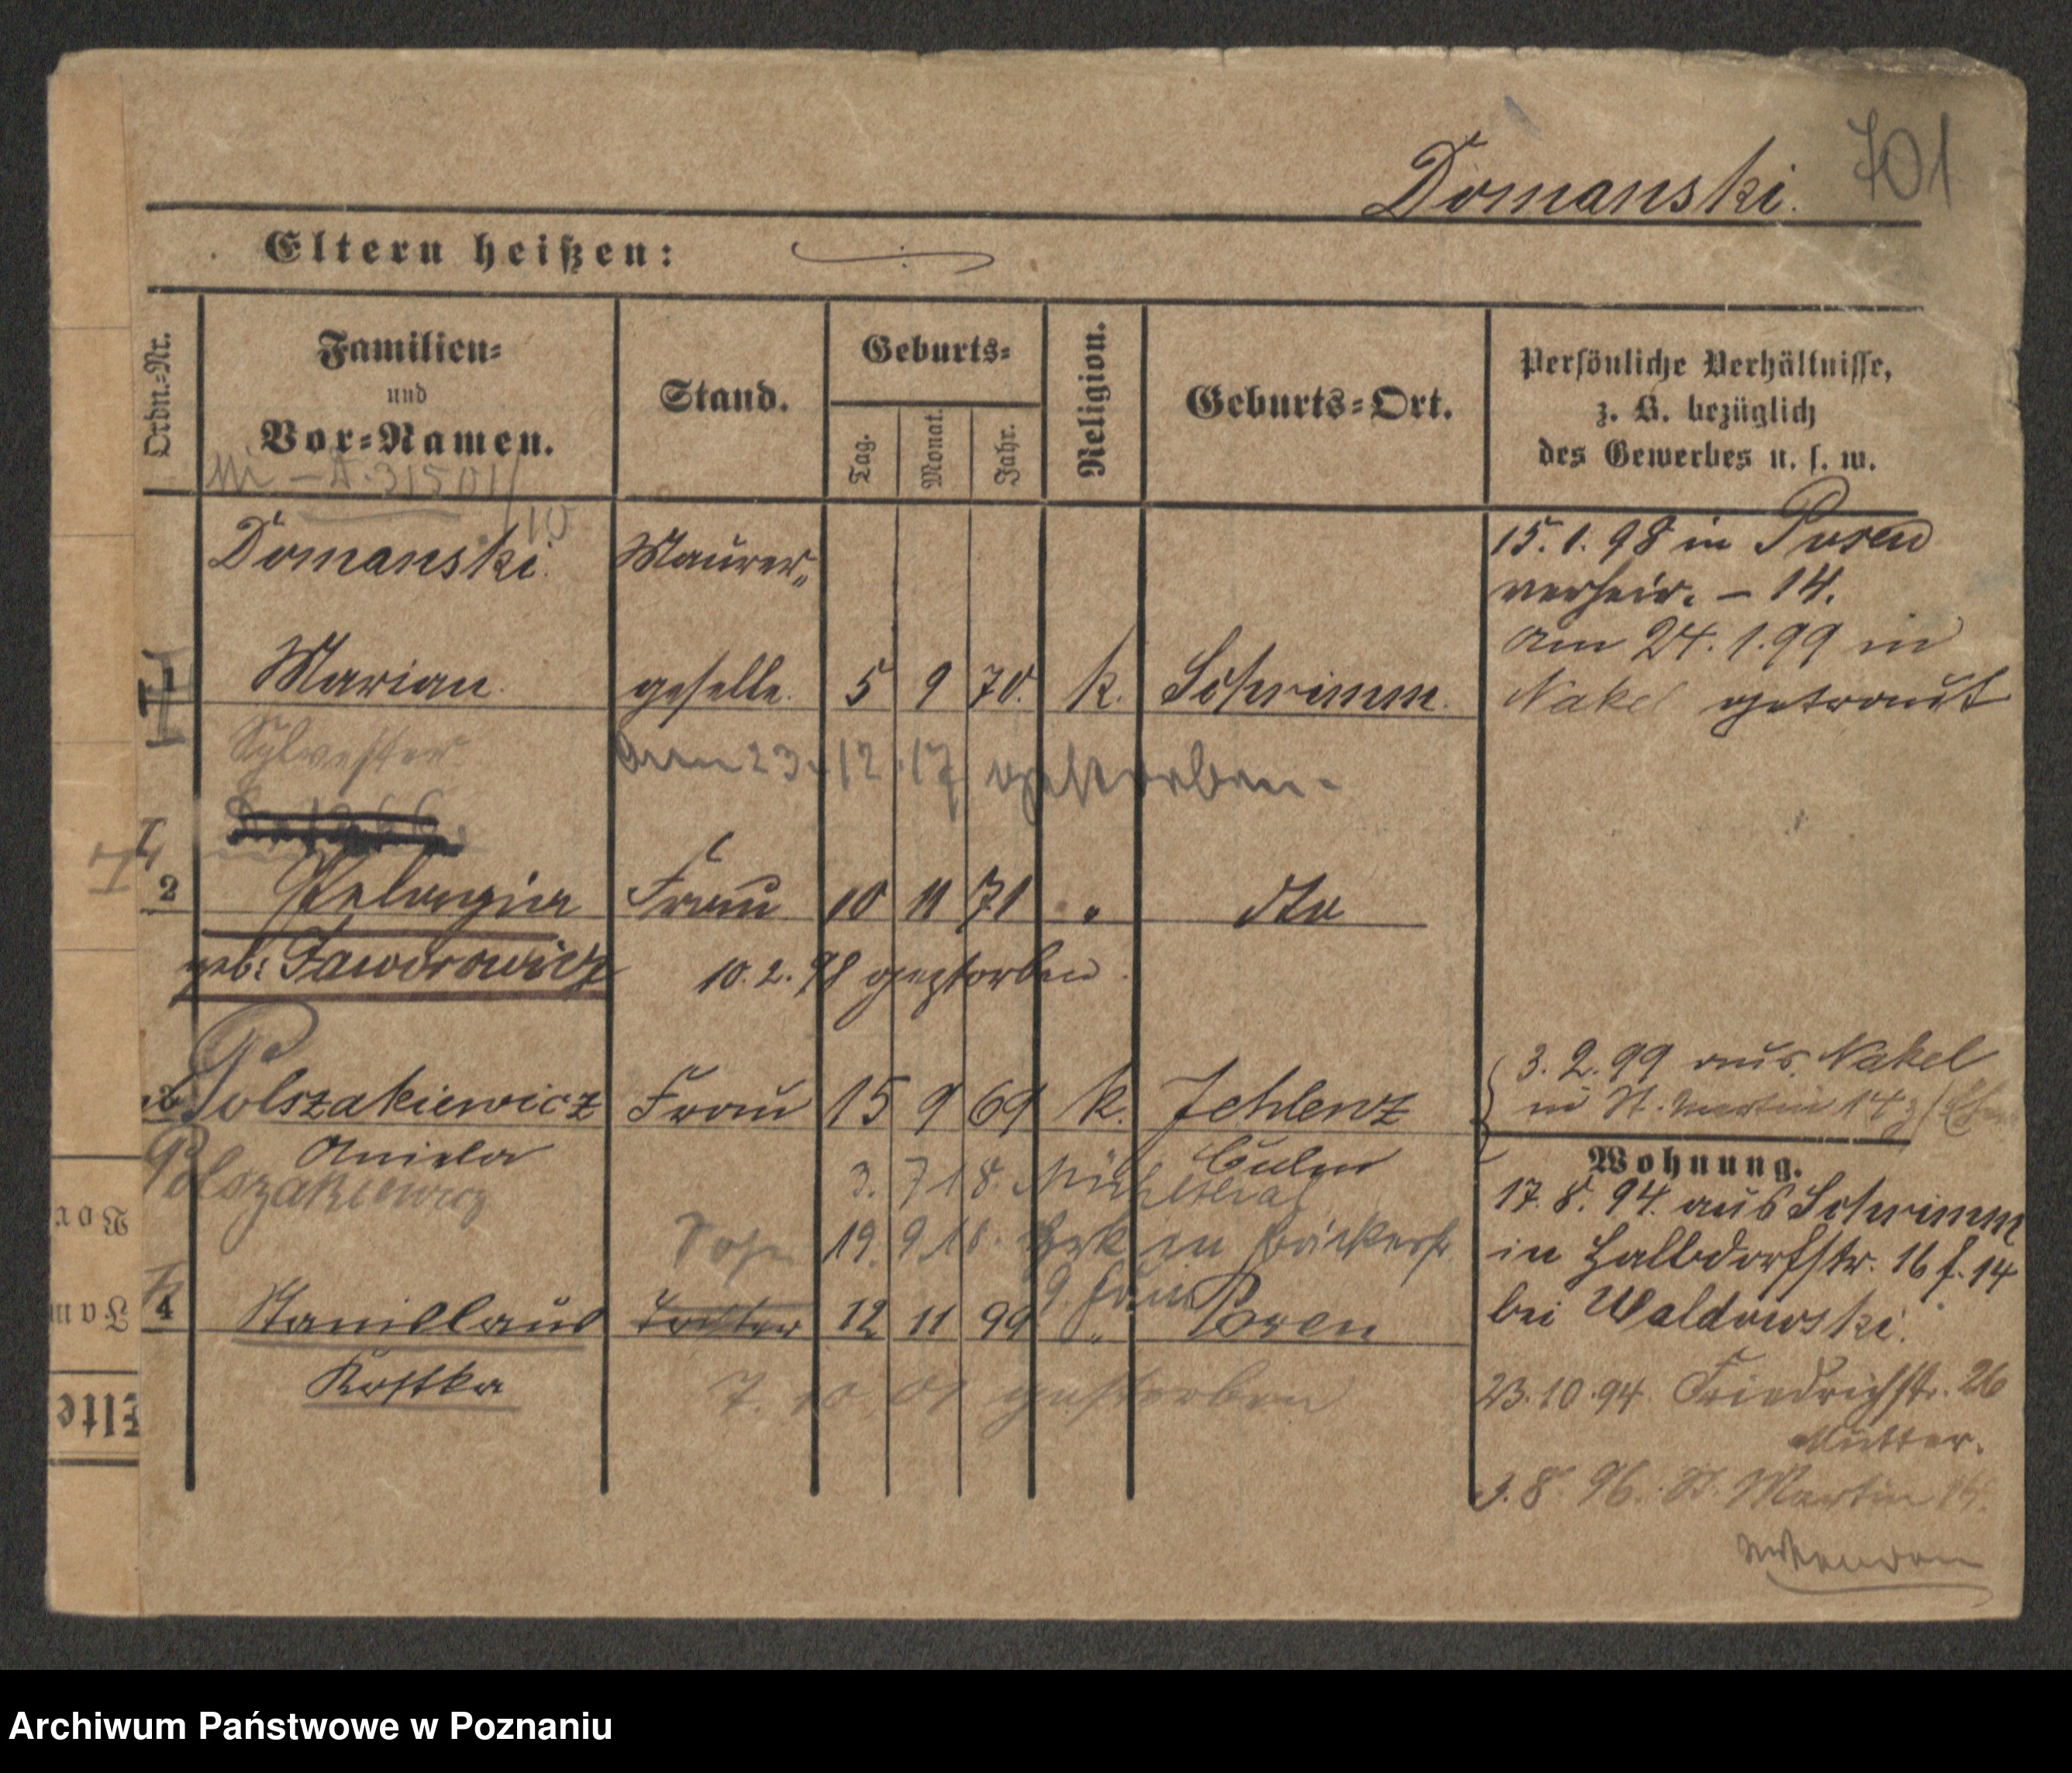 701
Domanski.
Eltern heißen:
Ordn.=Nr.
Familien=
und
Vor=Namen.
Stand.
Geburts=
Tag.
Monat.
Jahr.
Religion.
Geburts=Ort.
Persönliche Verhältnisse,
z. B. bezüglich
des Gewerbes u. s. w.
Domanski. Maurer=
15. 1. 98 in Posen
verheir. – 14.
Am 24. 1. 99 in
Nakel getraut
1 Marian. geselle. 5 9 70. k. Schrimm.
Sylvester
am 23. 12. 17 gestorben.
2 Pelagia Frau 10 11 71 " dto
geb: Jaworowicz 10. 2. 98 gestorben.
3. 2. 99 aus Nakel
in St. Martin 14
Polszakiewicz Frau 15 9 69 k.
Aniela
Polszakiewicz
3. 7 18.
Sohn 19. 9 18. in Bäckerstr.
4 Stanislaus 12 11 99 " Posen
Kostka
7. 10. 01 gestorben
Wohnung.
17. 8. 94. aus Schrimm
in Halbdorfstr. 16 f. 14
bei Waldowski.
23. 10. 94. Friedrichstr. 26
Mutter.
3. 8. 96. St. Martin 14.
Archiwum Państwowe w Poznaniu